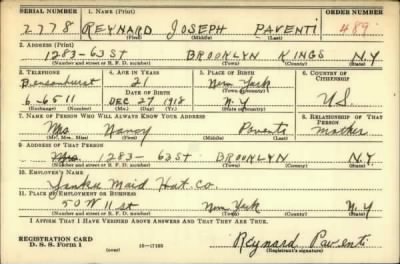 SERIAL NUMBER 1. NAME (Print) ORDER NUMBER
2778 REYNARD JOSEPH PAVENTI 489
(First) (Middle) (Last)
2. ADDRESS (Print)
1283-63 ST BROOKLYN KINGS N.Y
(Number and street or R. F. D. number) (Town) (County) (State)
3. TELEPHONE 4. AGE IN YEARS 5. PLACE OF BIRTH 6. COUNTRY OF CITIZENSHIP
Bensonhurst 21 New York
DATE OF BIRTH (Town or county)
6-6511 DEC 27 1918 N.Y U.S.
(Exchange) (Number) (Mo.) (Day) (Yr.) (State or country)
7. NAME OF PERSON WHO WILL ALWAYS KNOW YOUR ADDRESS 8. RELATIONSHIP OF THAT PERSON
Mrs Nancy Paventi mother
(Mr., Mrs., Miss) (First) (Middle) (Last)
9. ADDRESS OF THAT PERSON
1283-63 ST BROOKLYN N.Y.
(Number and street or R. F. D. number) (Town) (County) (State)
10. EMPLOYER'S NAME
Yankee Maid Hat. Co.
11. PLACE OF EMPLOYMENT OR BUSINESS
50 W 11 st New York N.Y
(Number and street or R. F. D. number) (Town) (County) (State)
I AFFIRM THAT I HAVE VERIFIED ABOVE ANSWERS AND THAT THEY ARE TRUE.
REGISTRATION CARD
D. S. S. Form 1 Reynard Paventi
(Registrant's signature)